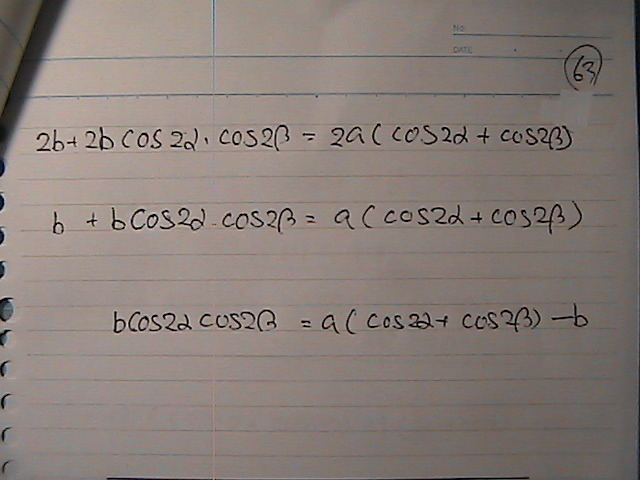 No.
DATE
63
2b + 2b cos 2α · cos2β = 2a ( cos2α + cos2β)
b + b cos2α · cos2β = a ( cos2α + cos2β )
b cos2α cos2β = a ( cos2α + cos2β) – b